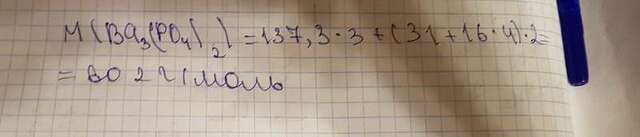 M(Ba₃(PO₄)₂) = 137,3·3 + (31+16·4)·2=
= 602 г/моль